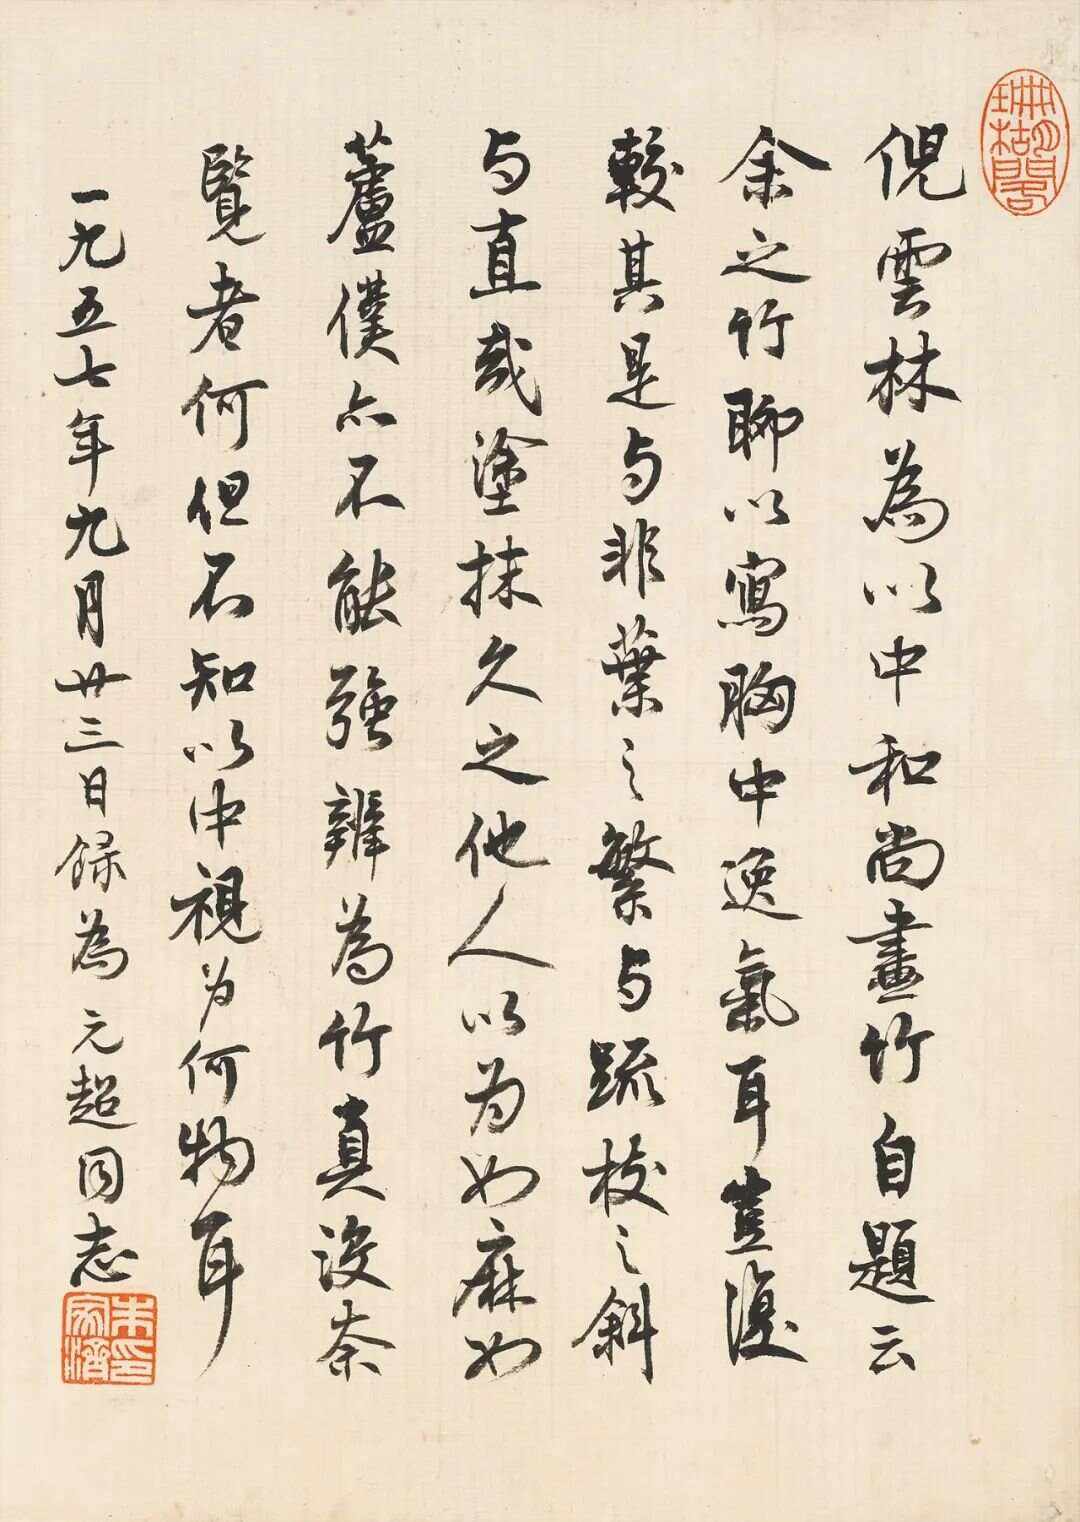 珊瑚閣
倪雲林為以中和尚畫竹自題云
余之竹聊以寫胸中逸氣耳豈復
較其是与非葉之繁与疏枝之斜
与直或塗抹久之他人以为如麻如
蘆僕亦不能强辨為竹真没奈
覽者何但不知以中視为何物耳
一九五七年九月廿三日録為元超同志
朱印家濟